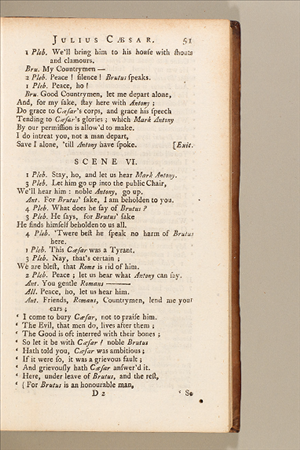 JULIUS CÆSAR. 51
1 Pleb. We'll bring him to his houſe with ſhouts
and clamours.
Bru. My Countrymen —
2 Pleb. Peace! ſilence! Brutus ſpeaks.
1 Pleb. Peace, ho!
Bru. Good Countrymen, let me depart alone,
And, for my ſake, ſtay here with Antony;
Do grace to Cæſar's corps, and grace his ſpeech
Tending to Cæſar's glories; which Mark Antony
By our permiſſion is allow'd to make.
I do intreat you, not a man depart,
Save I alone, 'till Antony have ſpoke. [Exit.
SCENE VI.
1 Pleb. Stay, ho, and let us hear Mark Antony.
3 Pleb. Let him go up into the public Chair,
We'll hear him: noble Antony, go up.
Ant. For Brutus' ſake, I am beholden to you.
4 Pleb. What does he ſay of Brutus?
3 Pleb. He ſays, for Brutus' ſake
He finds himſelf beholden to us all.
4 Pleb. 'Twere beſt he ſpeak no harm of Brutus
here.
1 Pleb. This Cæſar was a Tyrant.
3 Pleb. Nay, that's certain;
We are bleſt, that Rome is rid of him.
2 Pleb. Peace; let us hear what Antony can ſay.
Ant. You gentle Romans ———
All. Peace, ho, let us hear him.
Ant. Friends, Romans, Countrymen, lend me your
ears;
‘ I come to bury Cæſar, not to praiſe him.
‘ The Evil, that men do, lives after them;
‘ The Good is oft interred with their bones;
‘ So let it be with Cæſar! noble Brutus
‘ Hath told you, Cæſar was ambitious;
‘ If it were ſo, it was a grievous fault;
‘ And grievouſly hath Cæſar anſwer'd it.
‘ Here, under leave of Brutus, and the reſt,
‘ (For Brutus is an honourable man,
D 2 ‘ So